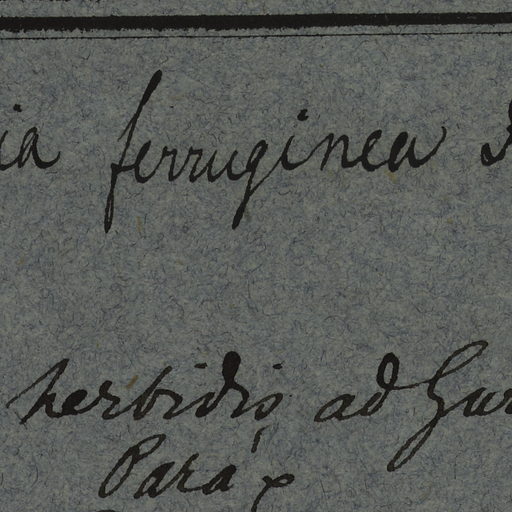 ia ferruginea
herbidis, ad Gur
Pará